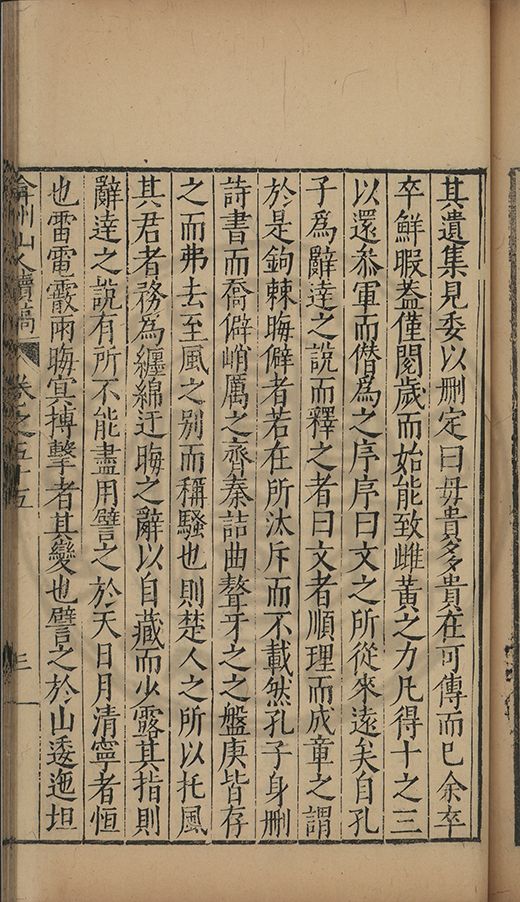 其遺集見委以刪定曰毋貴多多貴在可傳而已余卒
卒鮮暇葢僅閱歲而始能致雌黃之力凡得十之三
以還叅軍而僭爲之序序曰文之所從來遠矣自孔
子爲辭達之說而釋之者曰文者順理而成章之謂
於是鉤棘晦僻者若在所汰斥而不載然孔子身刪
詩書而喬僻峭厲之齊秦詰曲聱牙之之盤庚皆存
之而弗去至風之别而稱騷也則楚人之所以托風
其君者務爲纏綿迂晦之辭以自藏而少露其指則
辭達之說有所不能盡用譬之於天日月清寧者恒
也雷電霰雨晦冥搏擊者其變也譬之於山逶迤坦
弇州山人續稿 卷之五十五 三